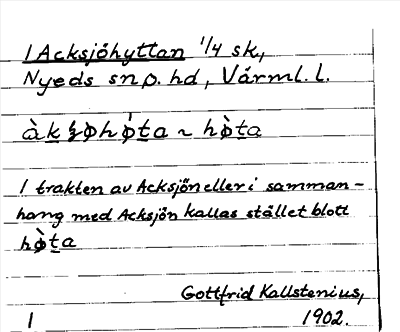 1 Acksjöhyttan 1/4 sk,
Nyeds sn o. hd, Värml. l.
àkʂøhø̀ta ~ hø̀ta
I trakten av Acksjön eller i samman-
hang med Acksjön kallas stället blott
hø̀ta
Gottfrid Kallstenius,
1902.
1